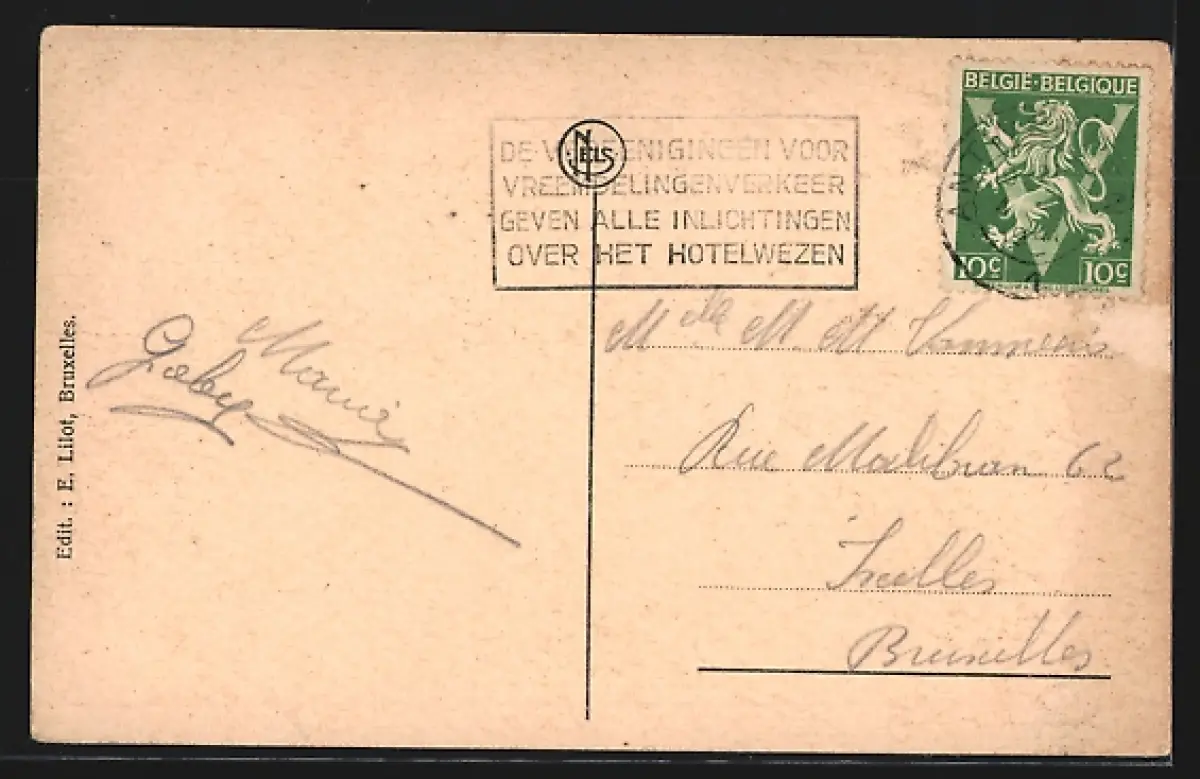 BELGIË·BELGIQUE
10c 10c
NELS
DE VEREENIGINGEN VOOR
VREEMDELINGENVERKEER
GEVEN ALLE INLICHTINGEN
OVER HET HOTELWEZEN
Edit. : E. Lilot, Bruxelles.
Gaby
Mlle M. M
Rue Malibran 62
Ixelles
Bruxelles